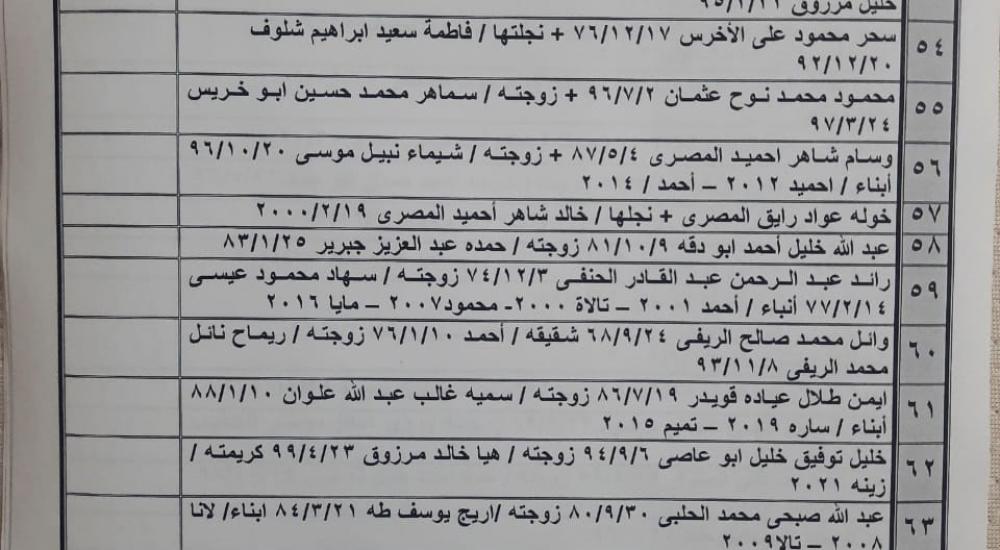 خليل مرزوق ٩٥/١/٢١
٥٤
سحر محمود على الأخرس ٧٦/١٢/١٧ + نجلتها / فاطمة سعيد ابراهيم شلوف
٩٢/١٢/٢٠
٥٥
محمود محمد نوح عثمان ٩٦/٧/٢ + زوجته / سماهر محمد حسين ابو خريس
٩٧/٣/٢٤
٥٦
وسام شاهر احميد المصرى ٨٧/٥/٤ + زوجته / شيماء نبيل موسى ٩٦/١٠/٢٠
أبناء / احميد ٢٠١٢ – أحمد / ٢٠١٤
٥٧
خوله عواد رايق المصرى + نجلها / خالد شاهر أحميد المصرى ٢٠٠٠/٢/١٩
٥٨
عبد الله خليل أحمد ابو دقه ٨١/١٠/٩ زوجته / حمده عبد العزيز جبرير ٨٣/١/٢٥
٥٩
رائد عبد الرحمن عبد القادر الحنفى ٧٤/١٢/٣ زوجته / سهاد محمود عيسى
٧٧/٢/١٤ أنباء / أحمد ٢٠٠١ – تالاة ٢٠٠٠- محمود٢٠٠٧ – مايا ٢٠١٦
٦٠
وائل محمد صالح الريفى ٦٨/٩/٢٤ شقيقه / أحمد ٧٦/١/١٠ زوجته / ريماح نائل
محمد الريفى ٩٣/١١/٨
٦١
ايمن طلال عياده قويدر ٨٦/٧/١٩ زوجته / سميه غالب عبد الله علوان ٨٨/١/١٠
أبناء / ساره ٢٠١٩ – تميم ٢٠١٥
٦٢
خليل توفيق خليل ابو عاصى ٩٤/٩/٦ زوجته / هيا خالد مرزوق ٩٩/٤/٢٣ كريمته /
زينه ٢٠٢١
٦٣
عبد الله صبحى محمد الحلبى ٨٠/٩/٣٠ زوجته /اريج يوسف طه ٨٤/٣/٢١ ابناء/ لانا
٢٠٠٨ – تالا٢٠٠٩